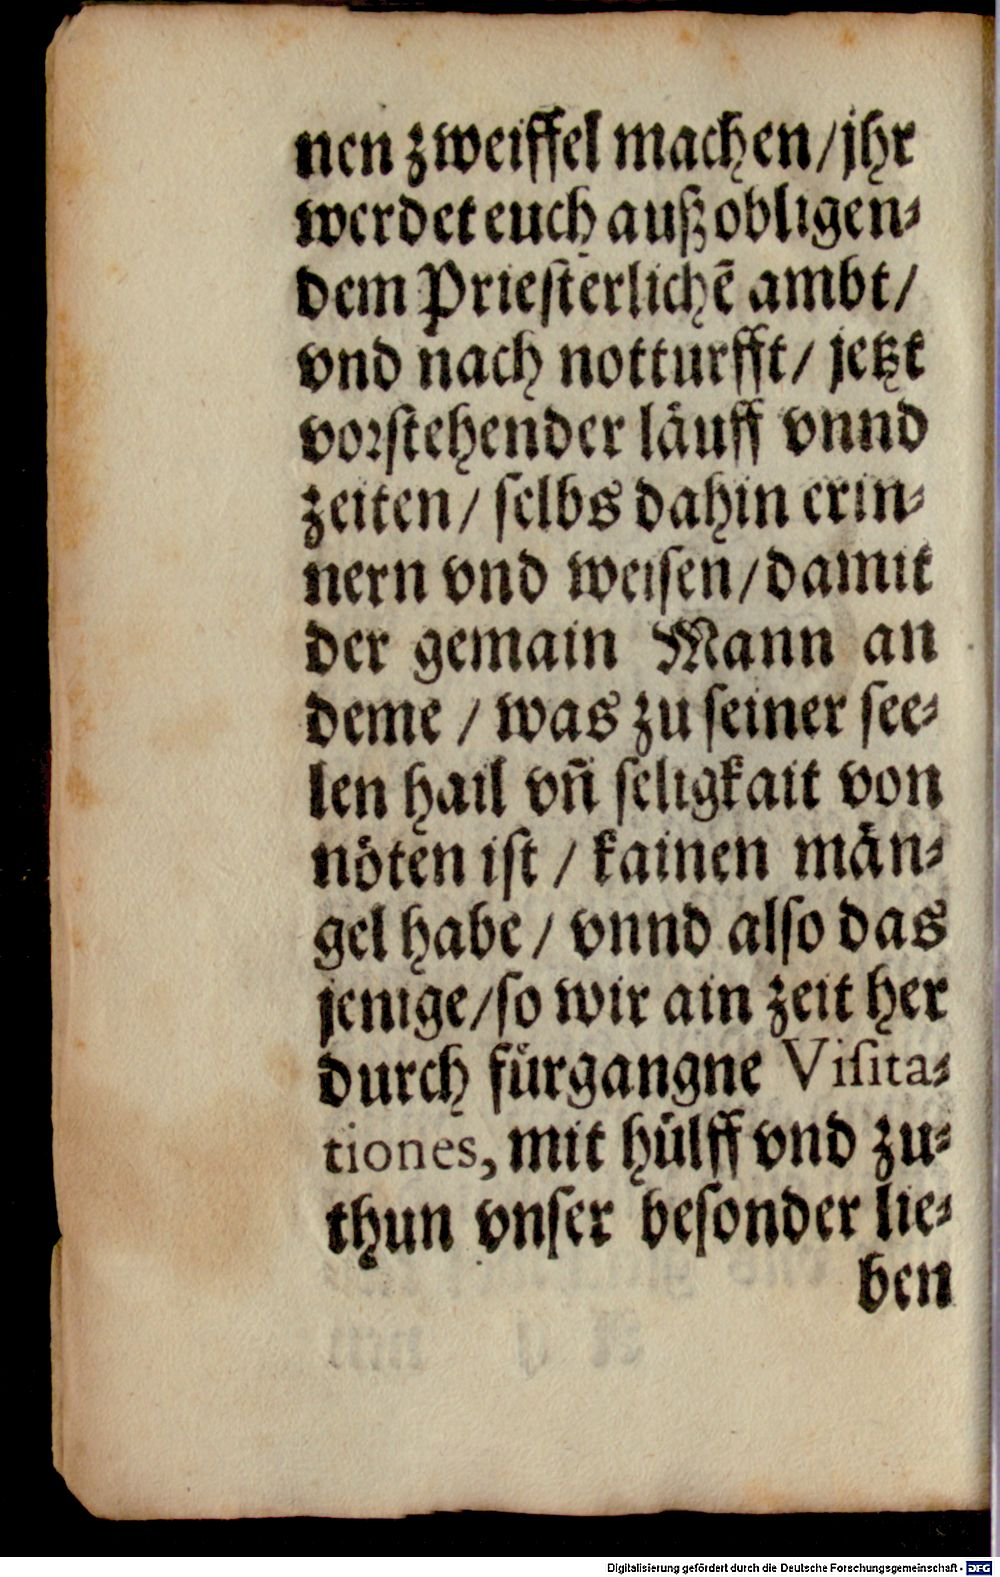 nen zweiffel machen/jhr
werdet euch auß obligen⸗
dem Priesterlichē ambt/
vnd nach notturfft/ jetzt
vorstehender läuff vnnd
zeiten/ selbs dahin erin⸗
nern vnd weisen/damit
der gemain Mann an
deme / was zu seiner see⸗
len hail vñ seligkait von
nöten ist / kainen män⸗
gel habe/ vnnd also das
jenige/so wir ain zeit her
durch fürgangne Visita⸗
tiones, mit hülff vnd zu⸗
thun vnser besonder lie⸗
ben
Digitalisierung gefördert durch die Deutsche Forschungsgemeinschaft - DFG